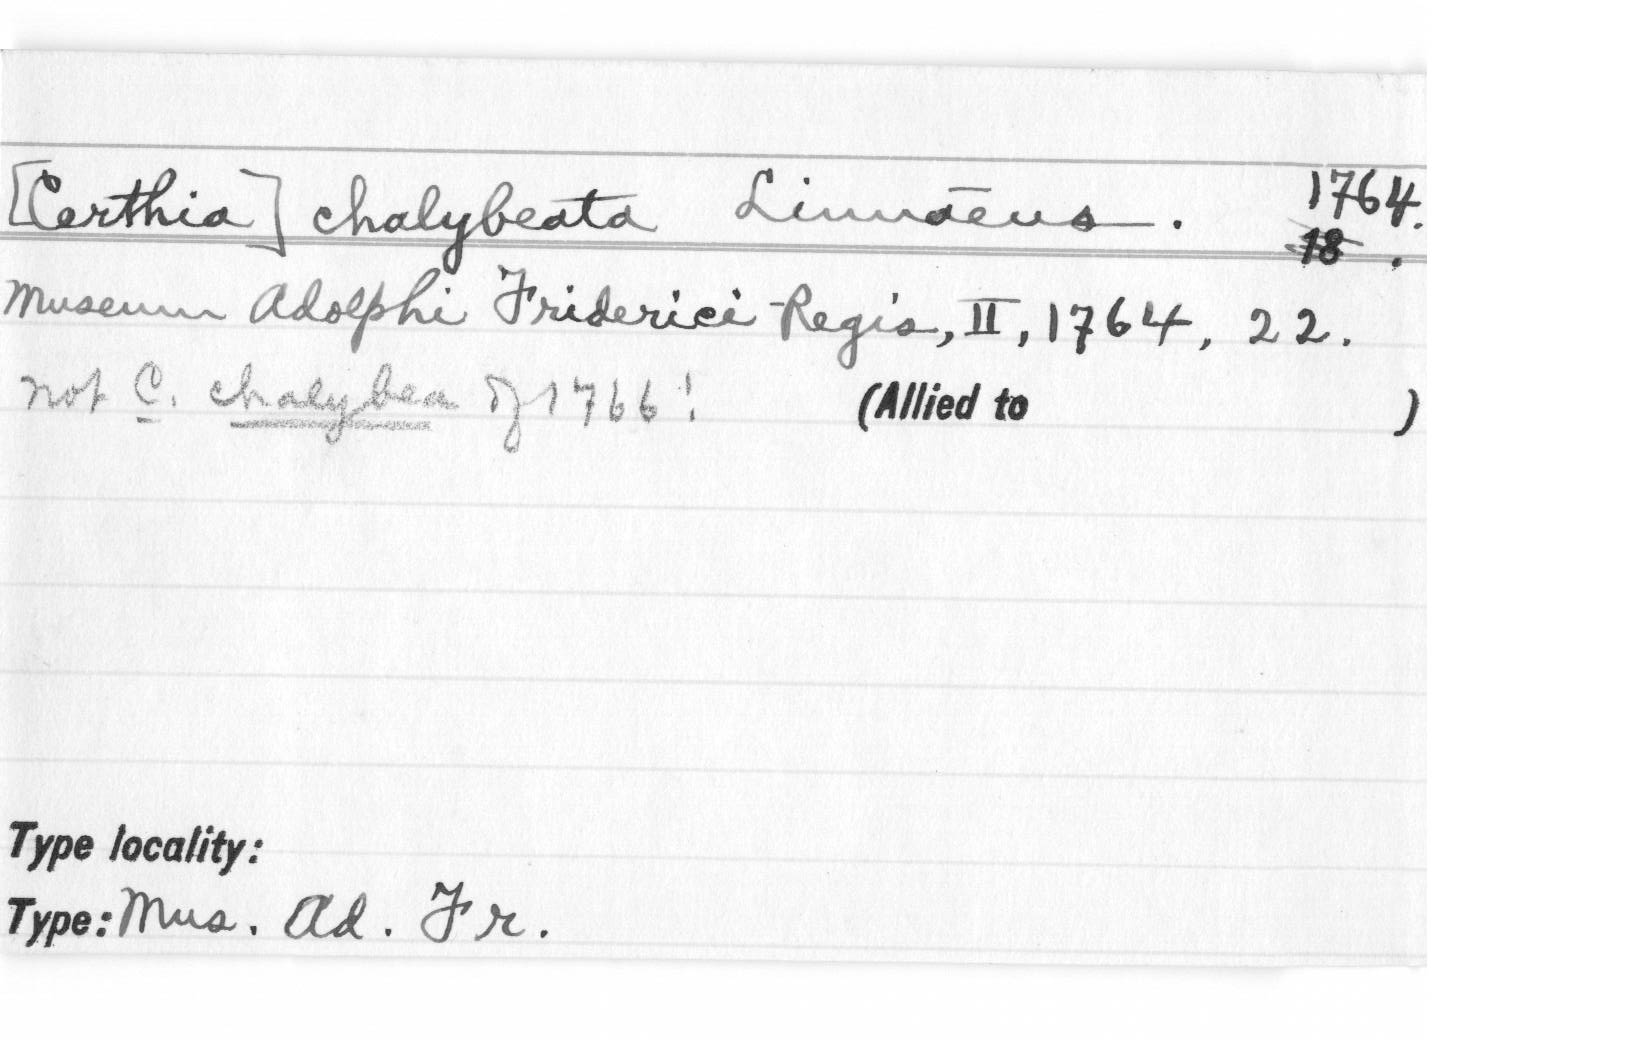 [Certhia] chalybeata Linnaeus. 1764.
18 .
Museum Adolphi Friderici Regis, II, 1764, 22.
not C. chalybea of 1766! (Allied to )
Type locality:
Type: Mus. Ad. Fr.